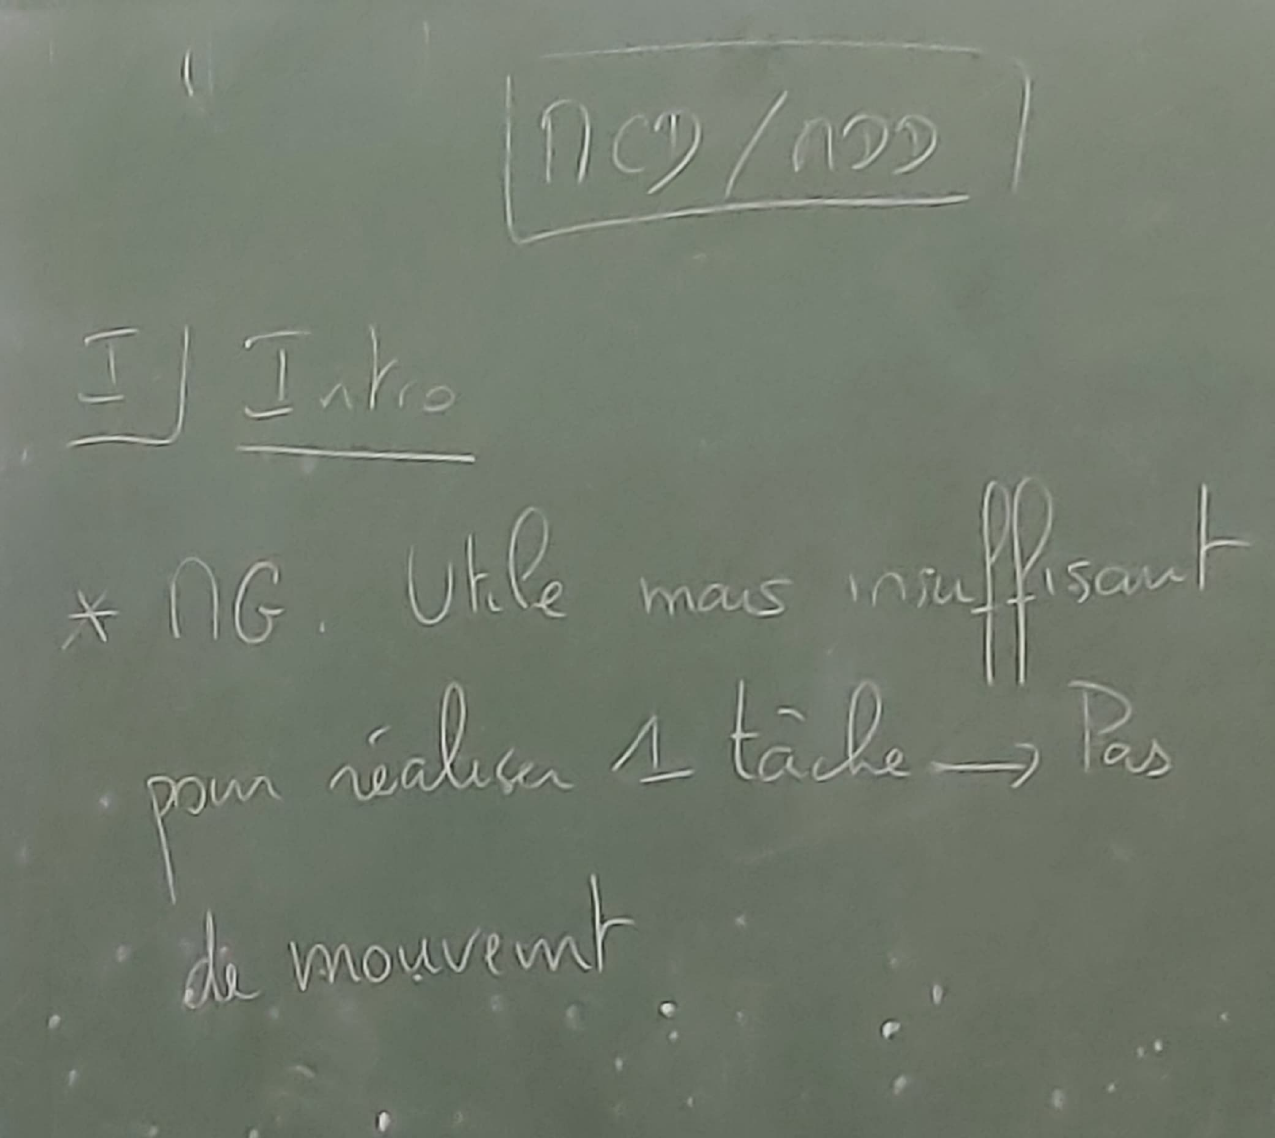 MCD/MDD
I) Intro
* MG. Utile mais insuffisant
pour réaliser 1 tâche → Pas
de mouvemt